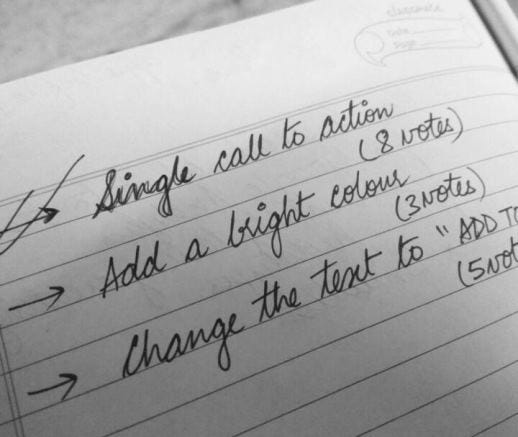 classmate
Date
Page
→ Single call to action
(8 votes)
→ Add a bright colour
(3 votes)
→ Change the text to "ADD TO
(5 vot